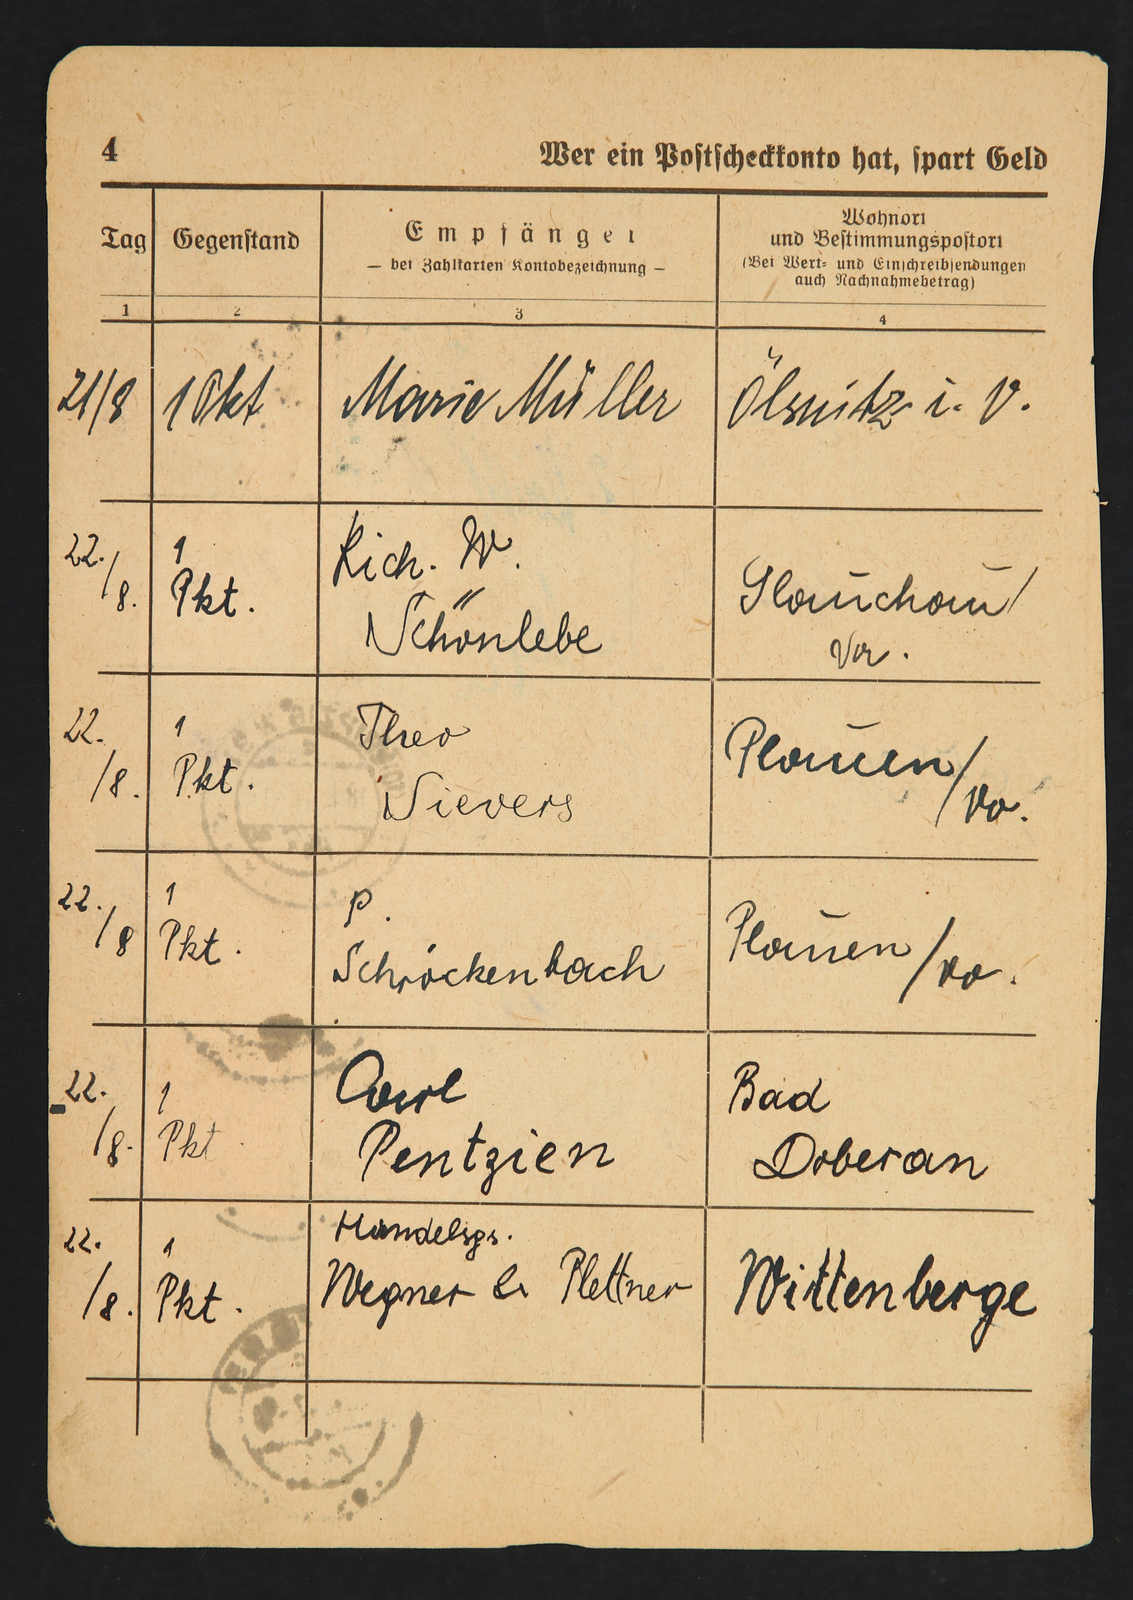 4
Wer ein Postscheckkonto hat, spart Geld
Tag
Gegenstand
Empfänger
– bei Zahlkarten Kontobezeichnung –
Wohnort
und Bestimmungspostort
(Bei Wert- und Einschreibsendungen
auch Nachnahmebetrag)
1
2
3
4
21/8
1 Pkt
Marie Müller
Ölsnitz i. V.
22./8.
1
Pkt.
Rich. W.
Schönlebe
Glauchau/
22./8.
1
Pkt.
Theo
Sievers
Plauen/
Vo.
22./8
1
Pkt.
P.
Schröckenbach
Plauen/Vo.
22./8.
1
Pkt
Carl
Pentzien
Bad
Doberan
22./8.
1
Pkt.
Handelsgs.
Wegner & Plettner
Wittenberge